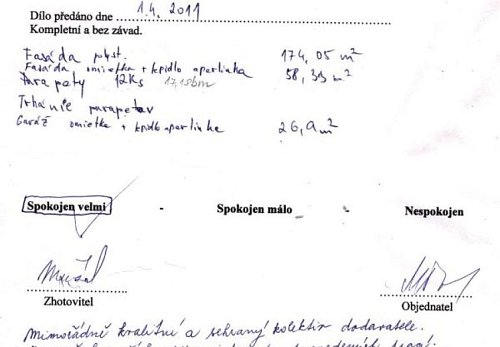 Dílo předáno dne 1.4.2011
Kompletní a bez závad.
Fasáda polyst. 174,05 m²
Fasáda omietka + kpidlo aperlinka 58,39 m²
Parapety 12Ks 17,1sbm
Trhánie parapetov
Garáž omietka + kpidlo aperlinka 26,9 m²
Spokojen velmi - Spokojen málo - Nespokojen
Zhotovitel Objednatel
Mimořádně kvalitní a sehraný kolektiv dodavatele.